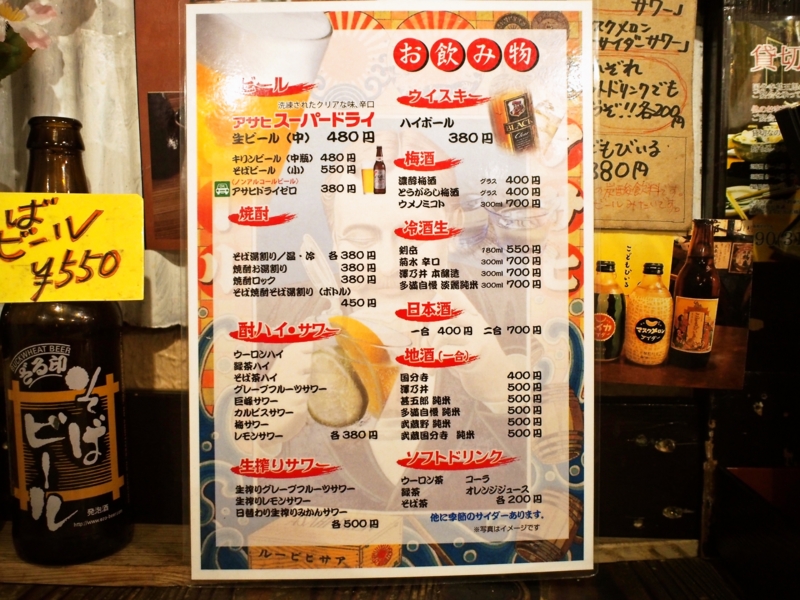 お飲み物
ビール
洗練されたクリアな味、辛口
アサヒスーパードライ
生ビール（中） 480円
キリンビール（中瓶） 480円
そばビール （小） 550円
(ノンアルコールビール)
アサヒドライゼロ 380円
焼酎
そば湯割り／温・冷 各380円
焼酎お湯割り 380円
焼酎ロック 380円
そば焼酎そば湯割り（ボトル）
450円
酎ハイ・サワー
ウーロンハイ
緑茶ハイ
そば茶ハイ
グレープフルーツサワー
巨峰サワー
カルピスサワー
梅サワー
レモンサワー 各380円
生搾りサワー
生搾りグレープフルーツサワー
生搾りレモンサワー
日替わり生搾りみかんサワー
各500円
ウイスキー
ハイボール
380円
BLACK
梅酒
濃醇梅酒 グラス 400円
とうがらし梅酒 グラス 400円
ウメノミコト 300ml 700円
冷酒生
剣岳 180ml 550円
菊水 辛口 300ml 700円
澤乃井 本醸造 300ml 700円
多満自慢 淡麗純米 300ml 700円
日本酒
一合 400円 二合 700円
地酒(一合)
国分寺 400円
澤乃井 500円
甚五郎 純米 500円
多満自慢 純米 500円
武蔵野 純米 500円
武蔵国分寺 純米 500円
ソフトドリンク
ウーロン茶 コーラ
緑茶 オレンジジュース
そば茶 各200円
他に季節のサイダーあります。
※写真はイメージです
ルービヒサア
ばビール
¥550
BUCKWHEAT BEER
そばビール
発泡酒
サワー」
スクメロン
サイダーサワー」
ぞれ
ドリンクでも
ぞ!!各200円
どもびいる
380円
こどもびいる
マスクメロン
サイダー
貸切